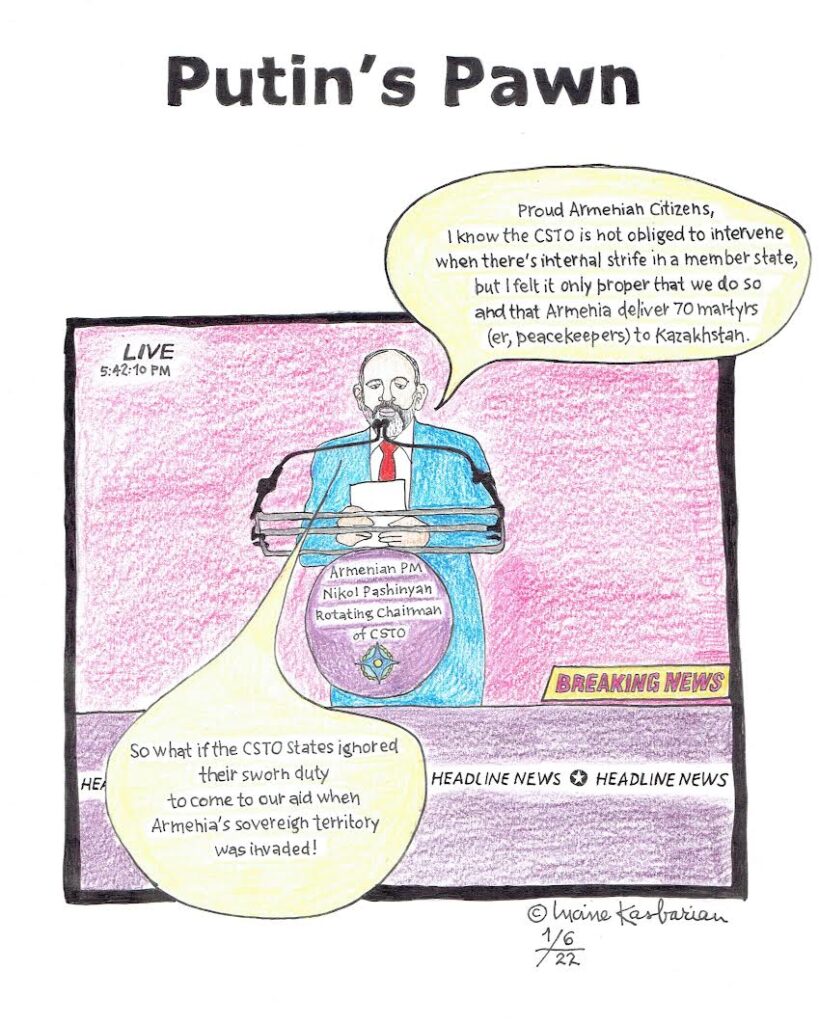 Putin's Pawn
Proud Armenian Citizens,
I know the CSTO is not obliged to intervene
when there's internal strife in a member state,
but I felt it only proper that we do so
and that Armenia deliver 70 martyrs
(er, peacekeepers) to Kazakhstan.
LIVE
5:42:10 PM
Armenian PM
Nikol Pashinyan
Rotating Chairman
of CSTO
BREAKING NEWS
So what if the CSTO States ignored
their sworn duty
to come to our aid when
Armenia's sovereign territory
was invaded!
HEA
HEADLINE NEWS ✪ HEADLINE NEWS
© Lucine Kasbarian
1/6
22